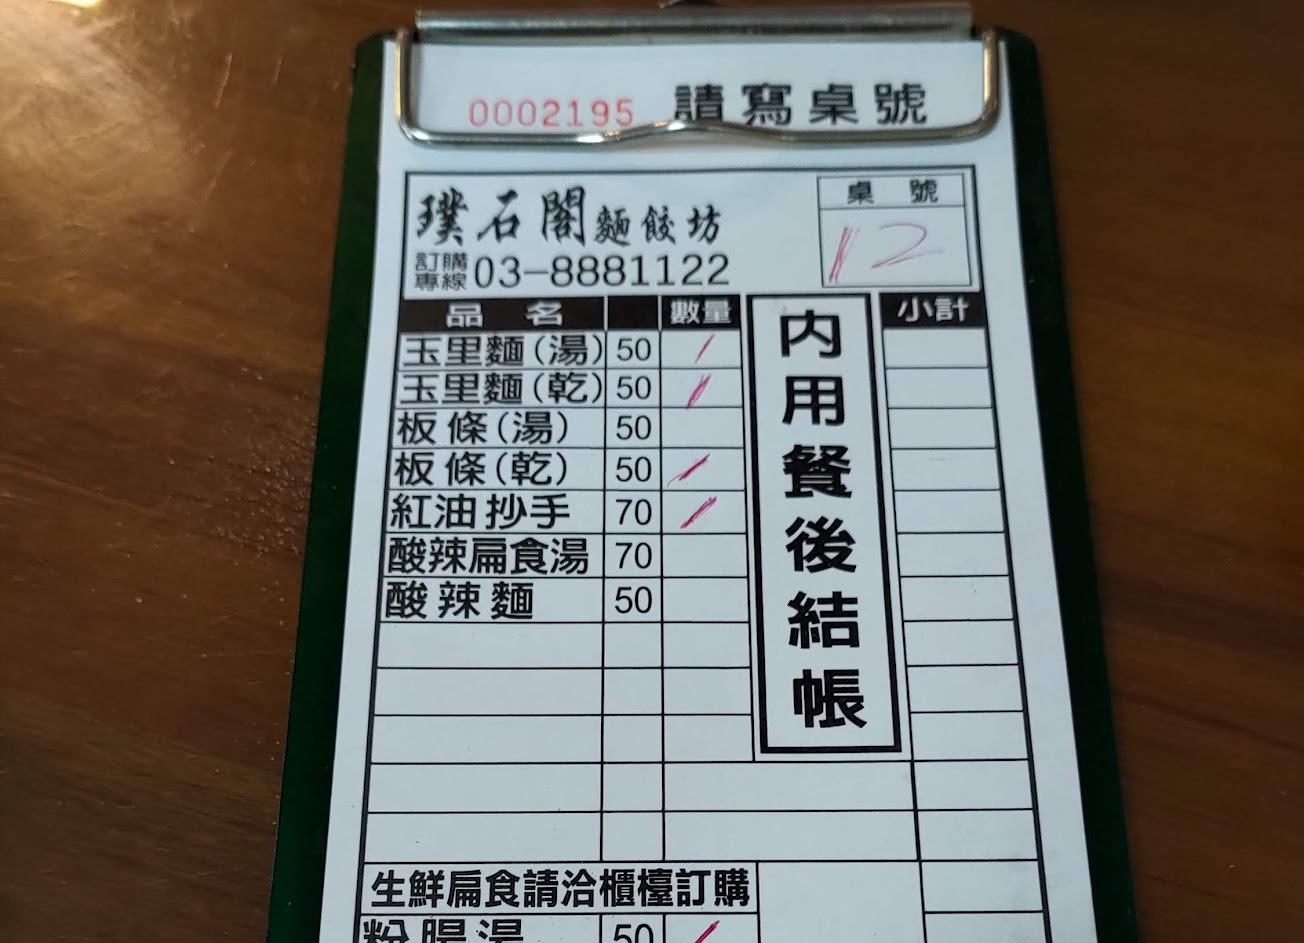 0002195 請寫桌號
璞石閣麵餃坊
桌號
12
訂購專線 03-8881122
品名 數量 小計
玉里麵(湯) 50 /
玉里麵(乾) 50 /
板條(湯) 50
板條(乾) 50 /
紅油抄手 70 /
酸辣扁食湯 70
酸辣麵 50
內用餐後結帳
生鮮扁食請洽櫃檯訂購
粉腸湯 50 /